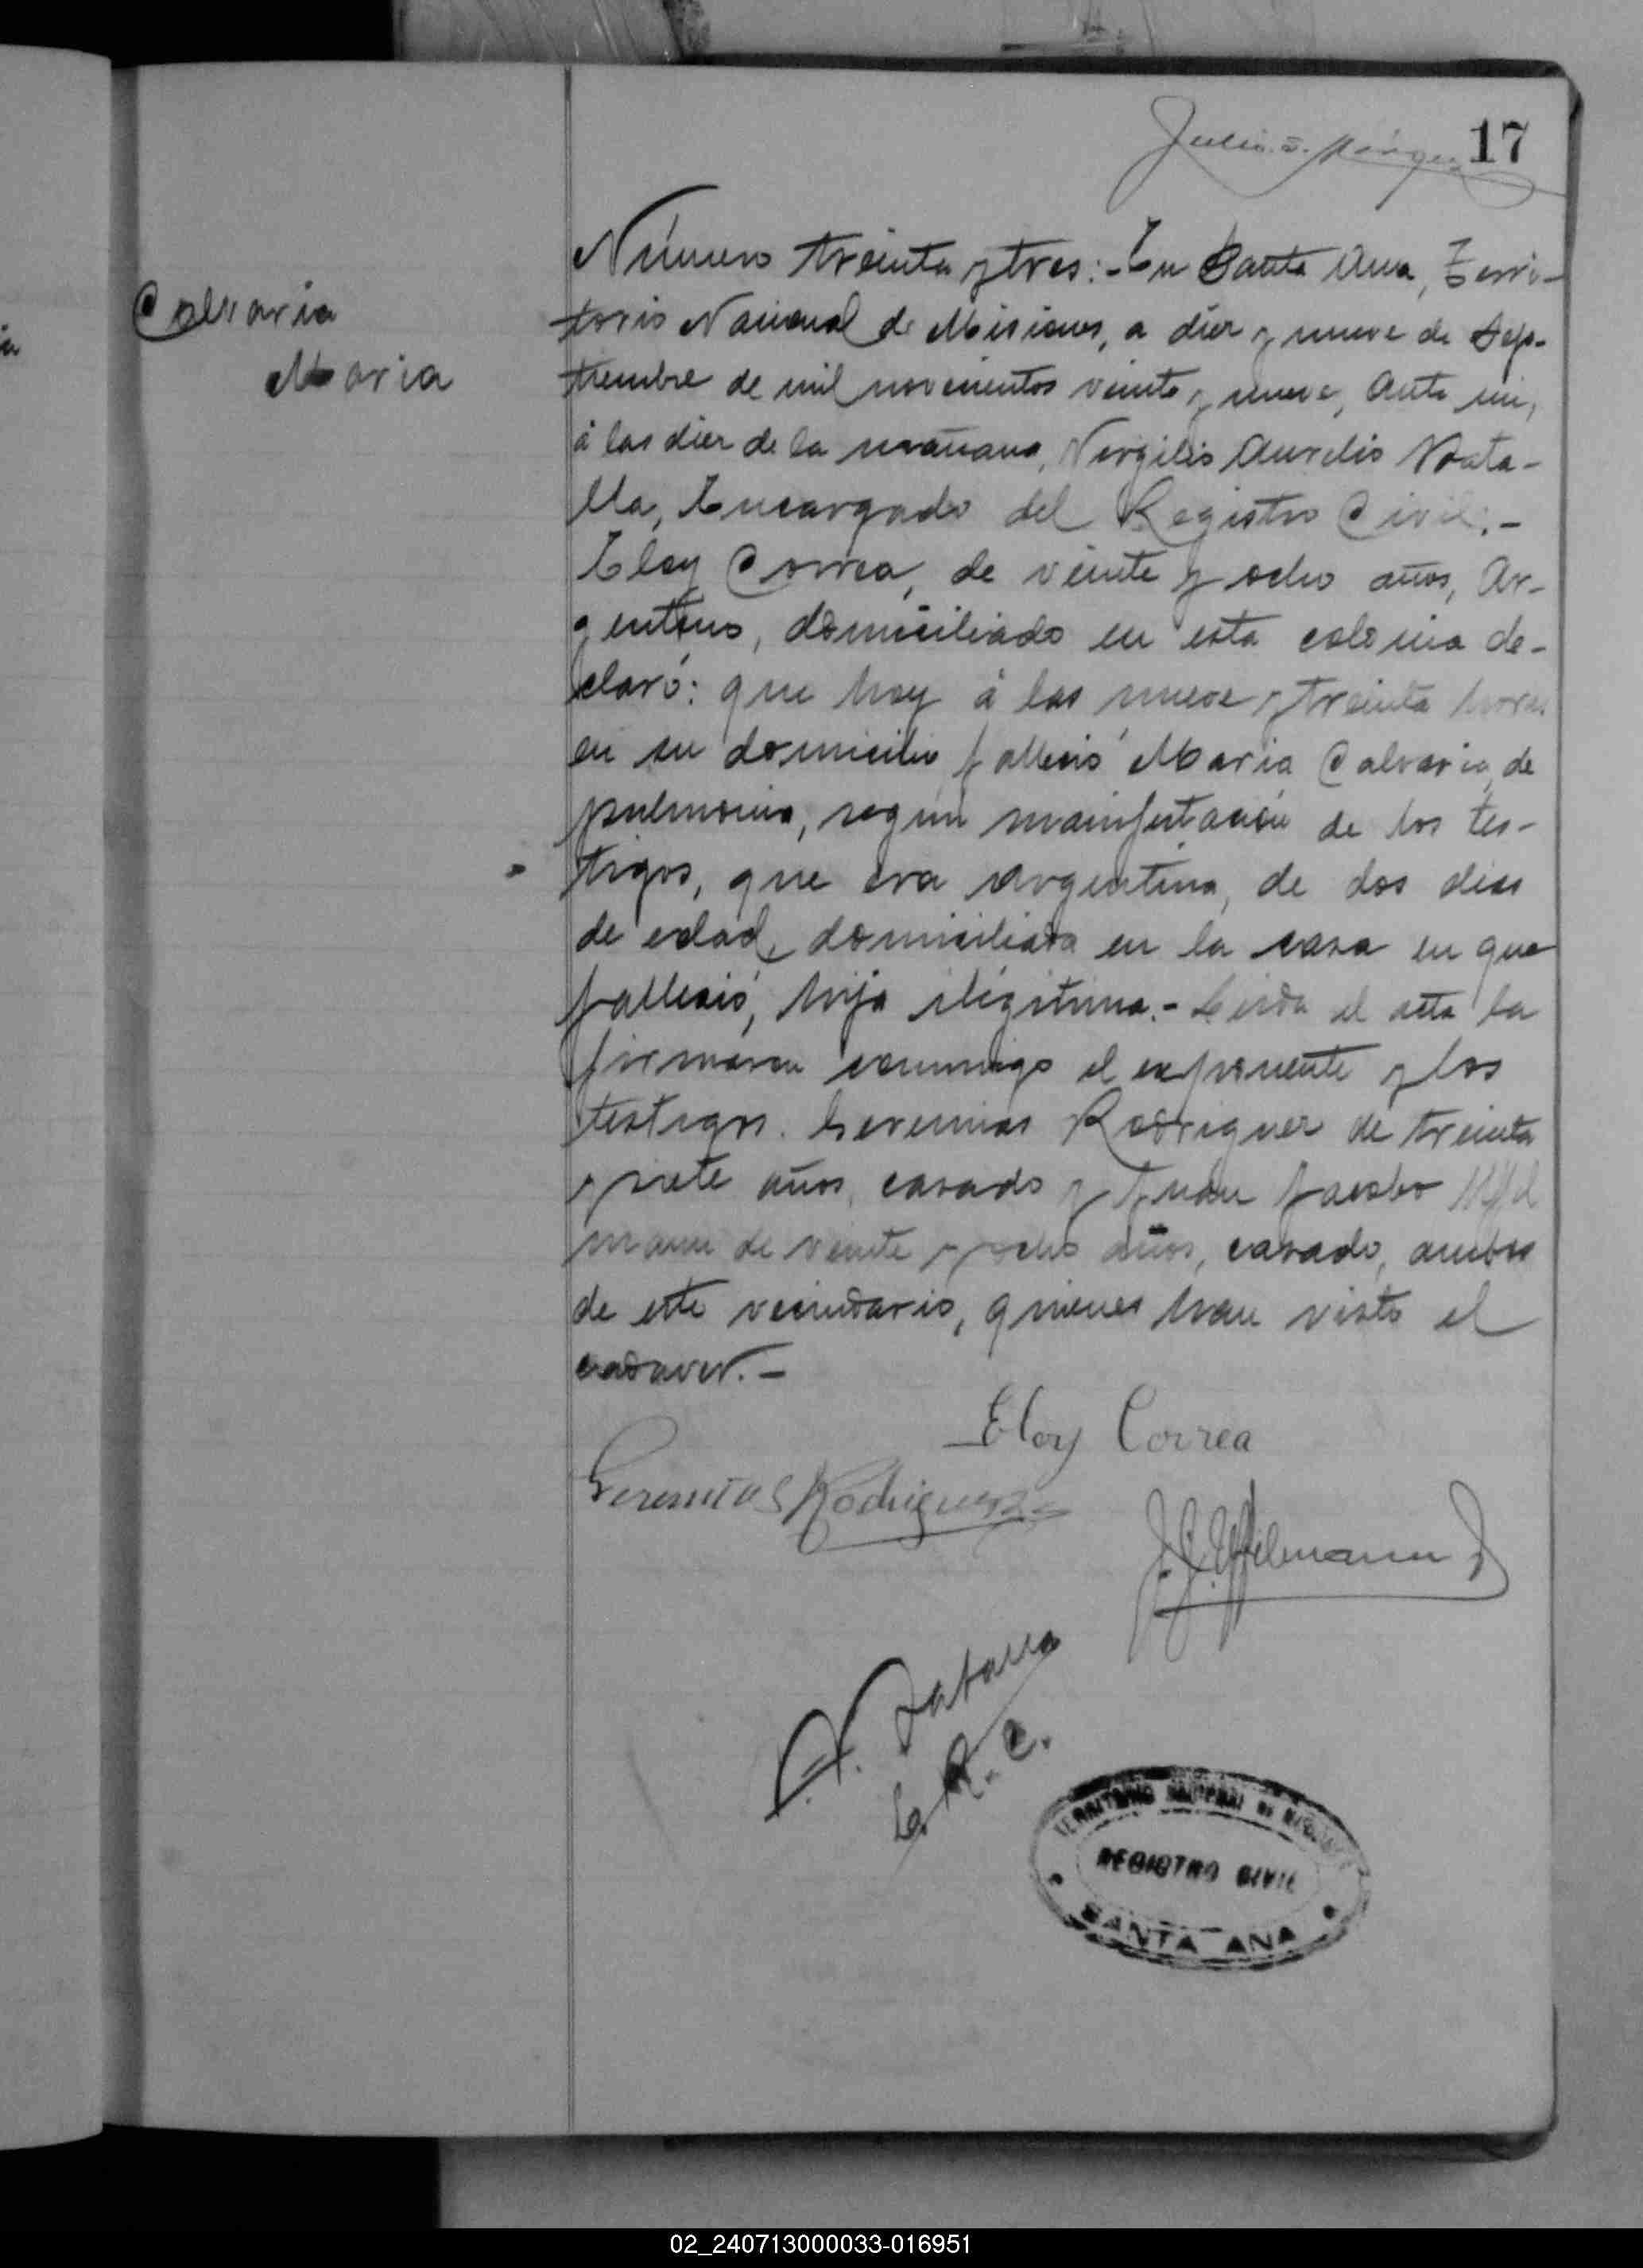 17
Calvaria
Maria
Número treinta y tres:- En Santa Ana, Terri-
torio Nacional de Misiones, a diez y nueve de Sep-
tiembre de mil novecientos veinte y nueve, ante mi,
á las diez de la mañana, Virgilio Aurelio
lla, Encargado del Registro Civil:-
Eloy Correa, de veinte y ocho años, Ar-
gentino, domiciliado en esta colonia de-
claró: que hoy á las nueve y treinta horas
en su domicilio falleció Maria Calvaria, de
pulmonia, según manifestación de los tes-
tigos, que era argentina, de dos dias
de edad, domiciliada en la casa en que
falleció, hija ilégitima.- Leida el acta la
firmaron conmigo el exponente y los
testigos. Geremias Rodriguez de treinta
y siete años, casado y Juan Jacobo Uffel
mann de veinte y ocho años, casado, ambos
de este vecindario, quienes han visto el
cadaver.-
Eloy Correa
Geremias Rodriguez
J. J. Uffelmann
E. R. C.
TERRITORIO NACIONAL DE MISIONES
REGISTRO CIVIL
SANTA ANA
02_240713000033-016951